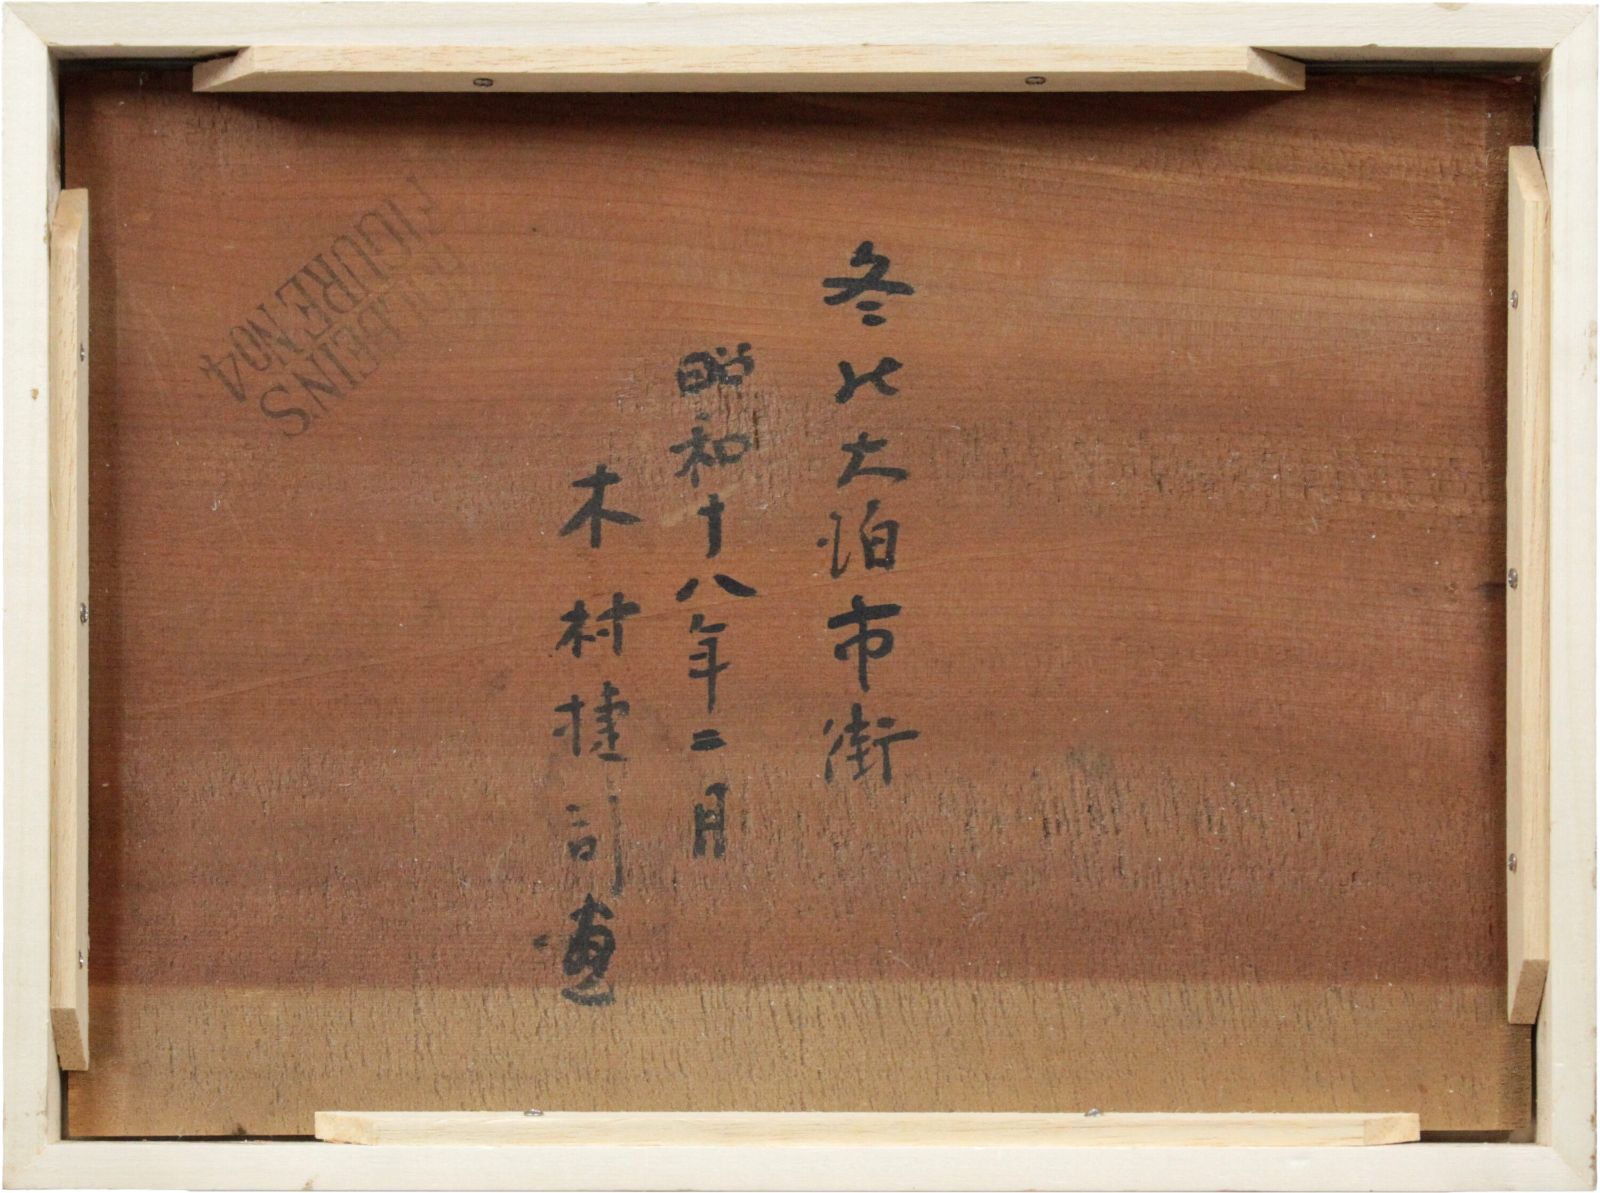 冬北大泊市街
昭和十八年二月
木村捷司画
HOLBEIN'S
FIGURE NO4